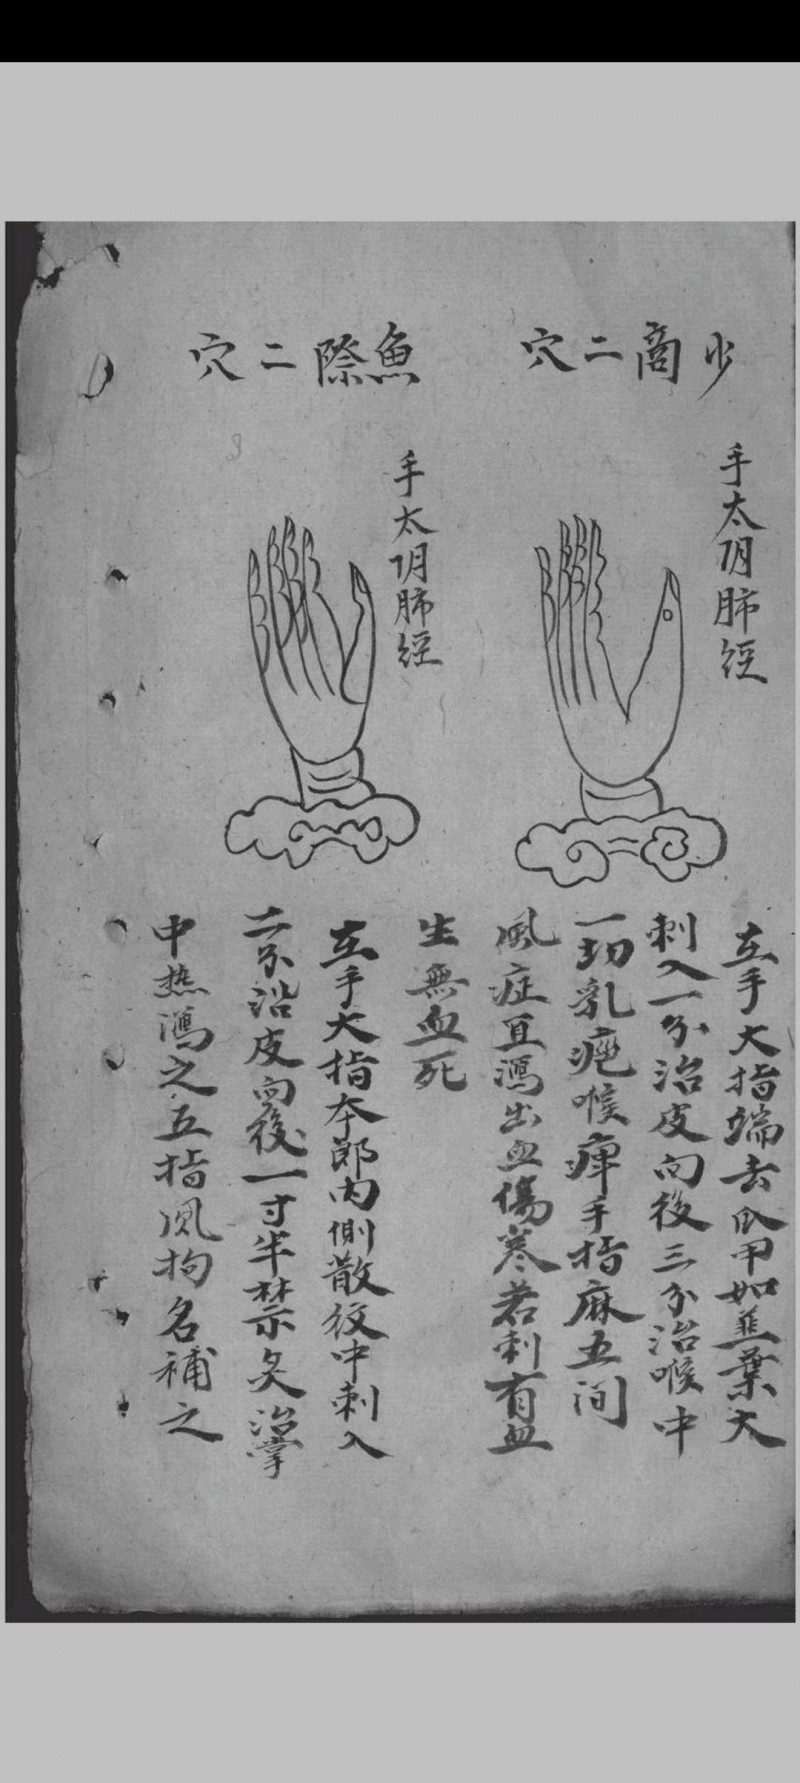 少商二穴
手太阴肺經
在手大指端去爪甲如韮葉大
刺入一分治皮向後三分治喉中
一切乳疤喉痺手指麻五间
風症宜瀉出血傷寒若刺有血
生無血死
魚際二穴
手太阴肺經
在手大指本郎内側散紋中刺入
二分沿皮向後一寸半禁灸治掌
中热瀉之五指风拘名補之